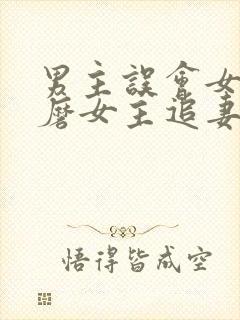 男主誤會女
磨女主追妻
悟得皆成空